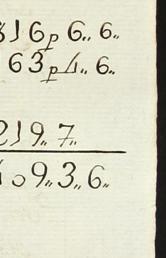 816 p 6,, 6,,
63 p 4,, 6,,
219,, 7,,
409,, 3,, 6,,